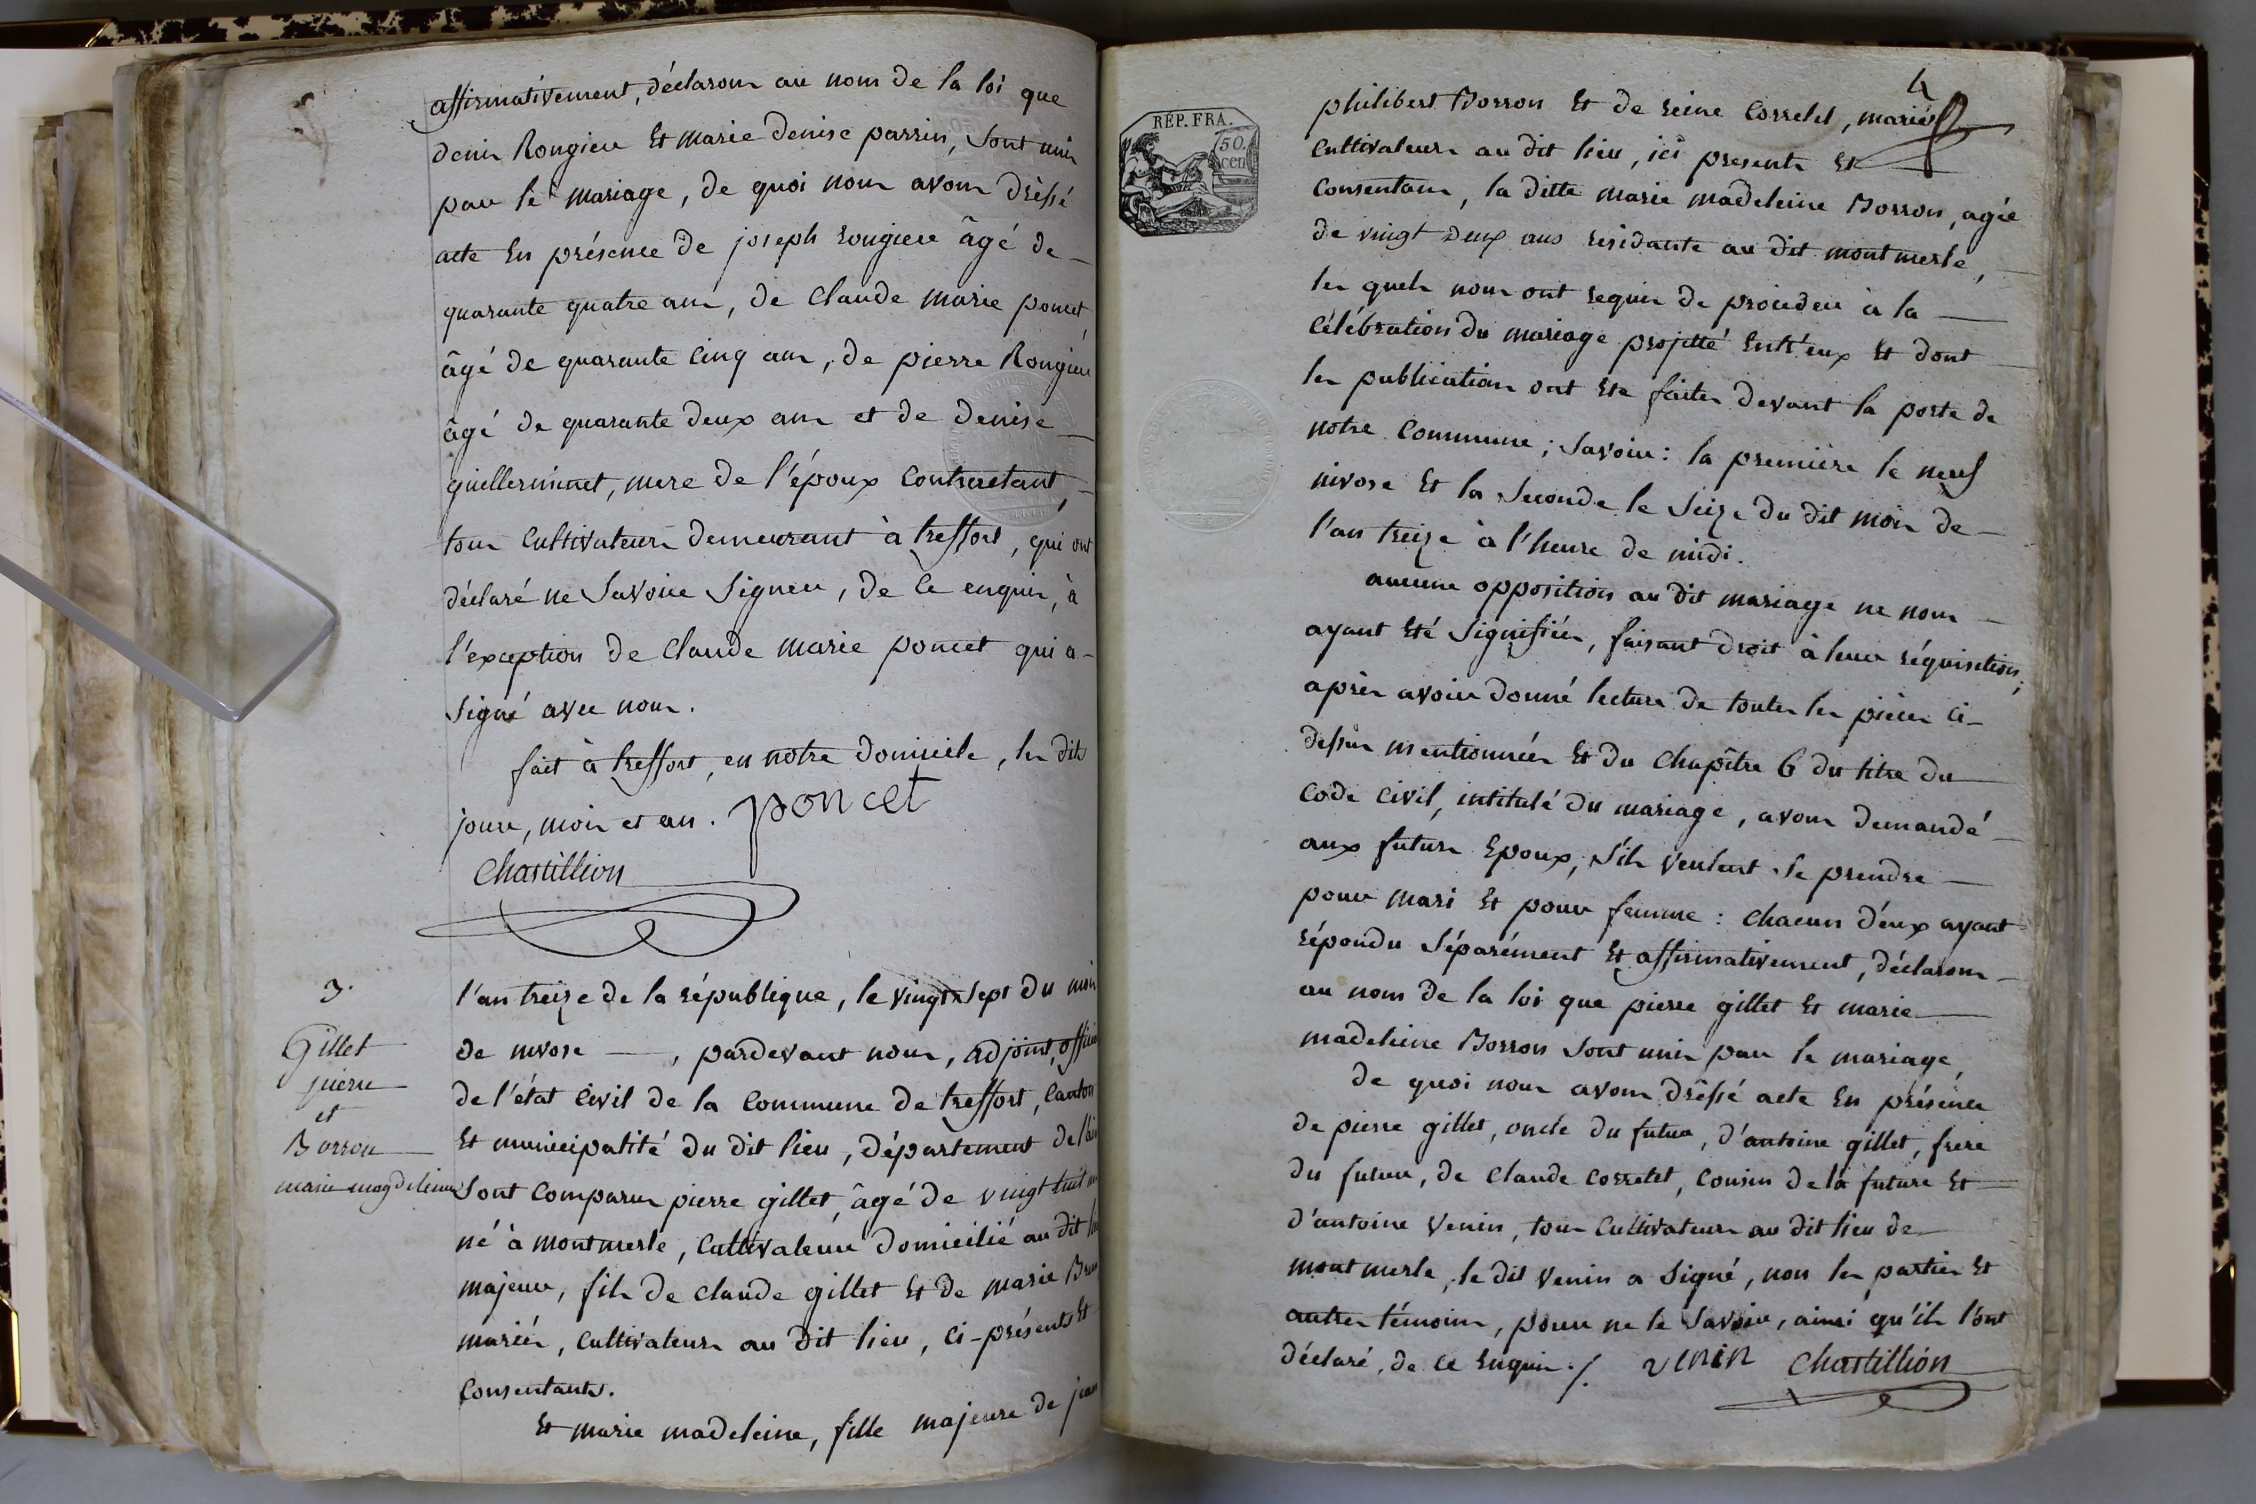 affirmativement, déclarons au nom de la loi que
denis Rougieu Et marie denise parrin, Sont unis
par le mariage, de quoi nous avons dréssé
acte En présence de joseph rougieu âgé de
quarante quatre ans, de Claude marie poncet,
âgé de quarante cinq ans, de pierre Rougieu
âgé de quarante deux ans et de Denise
guillerminet, mere de l'époux contractant,
tous cultivateurs demeurant à treffort, qui ont
déclaré ne Savoir Signer, de ce enquis, à
l'exception de Claude marie poncet qui a
Signé avec nous.
fait à treffort, en notre domicile, les dits
jour, mois et an. poncet
Chastillion
3.
Gillet
pierre
et
Borron
marie magdeleine
l'an treize de la république, le vingt Sept du mois
de nivose, pardevant nous, adjoint, officier
de l'état Civil de la Commune de treffort, Canton
Et municipalité du dit lieu, département de l'ain
Sont Comparus pierre gillet, âgé de vingt huit
né à montmerle, Cultivateur domicilié au dit
majeur, fils de claude gillet Et de marie
mariés, Cultivateurs au dit lieu, ci-présents Et
Consentants.
Et marie madeleine, fille majeure de jean
4
RÉP. FRA.
50.
cent
philibert Borron Et de reine Corretel, mariés
Cultivateurs au dit lieu, ici presents Et
Consentans, la ditte marie madeleine Borron, agée
de vingt deux ans residante au dit montmerle,
les quels nous ont requis de proceder à la
Célébration du mariage projetté Entr'eux Et dont
les publications ont Eté faites devant la porte de
notre Commune; Savoir: la première le neuf
nivose Et la Seconde le Seize du dit mois de
l'an treize à l'heure de midi.
aucune opposition au dit mariage ne nous
ayant Eté Signifiée, faisant droit à leur réquisition;
après avoir donné lecture de toutes les pièces ci-
dessus mentionnées Et du Chapitre 6 du titre du
Code Civil, intitulé du mariage, avons demandé
aux futurs Epoux, S'ils veulent Se prendre
pour mari Et pour femme: chacun d'eux ayant
répondu Séparément Et affirmativement, déclarons
au nom de la loi que pierre gillet Et marie
madeleine Borron Sont unis par le mariage,
de quoi nous avons dréssé acte En présence
de pierre gillet, oncle du futur, d'antoine gillet, frere
du futur, de Claude Corretel, Cousin de la future Et
d'antoine Venin, tous Cultivateurs au dit lieu de
montmerle, le dit Venin a Signé, non les parties Et
autres témoins, pour ne le Savoir, ainsi qu'ils l'ont
déclaré, de ce Enquis./. venin Chastillion